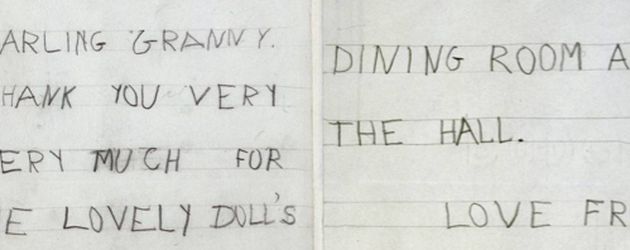 ARLING GRANNY.
HANK YOU VERY
ERY MUCH FOR
E LOVELY DOLL'S
DINING ROOM A
THE HALL.
LOVE FR